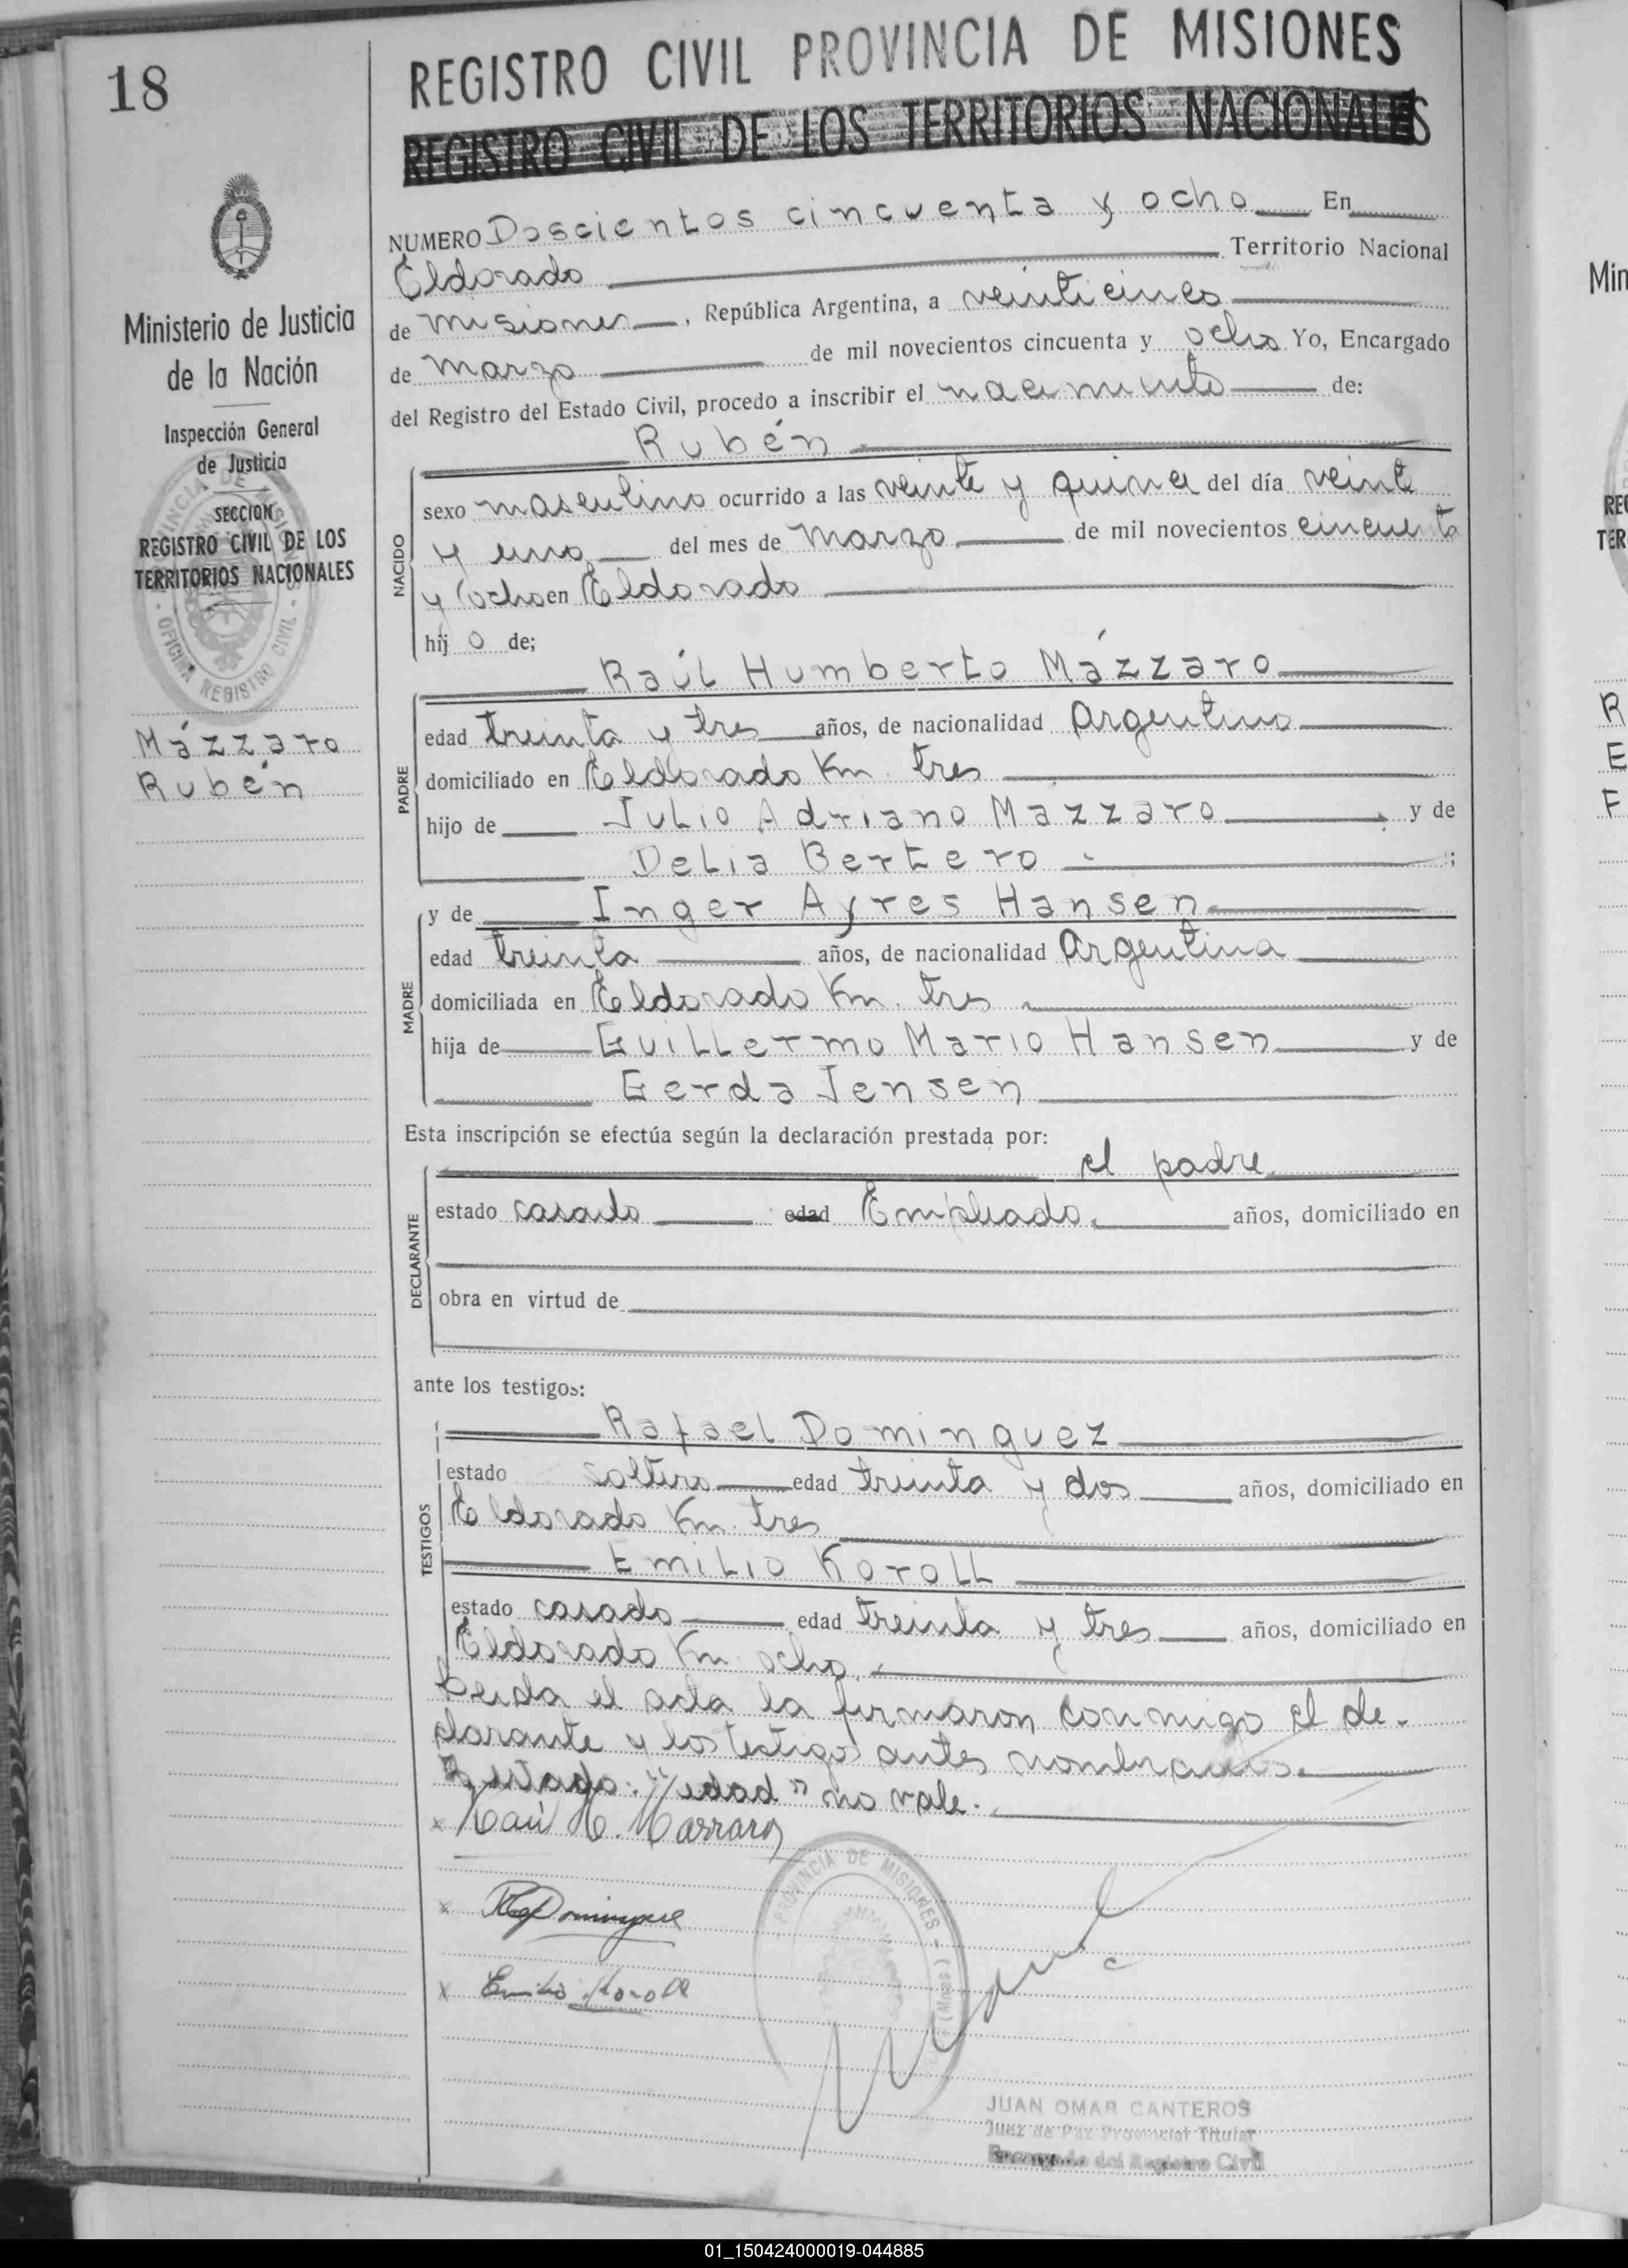 18
REGISTRO CIVIL PROVINCIA DE MISIONES
REGISTRO CIVIL DE LOS TERRITORIOS NACIONALES
Ministerio de Justicia
de la Nación
Inspección General
de Justicia
SECCION
REGISTRO CIVIL DE LOS
TERRITORIOS NACIONALES
PROVINCIA DE MISIONES
OFICINA REGISTRO CIVIL
Mázzaro
Rubén
NUMERO Doscientos cincuenta y ocho En
Eldorado Territorio Nacional
de Misiones, República Argentina, a veinticinco
de Marzo de mil novecientos cincuenta y ocho Yo, Encargado
del Registro del Estado Civil, procedo a inscribir el nacimiento de:
Rubén
NACIDO
sexo masculino ocurrido a las veinte y quince del día veinte
y uno del mes de Marzo de mil novecientos cincuenta
y ocho en Eldorado
hij o de;
Raúl Humberto Mázzaro
PADRE
edad treinta y tres años, de nacionalidad Argentino
domiciliado en Eldorado Km. tres
hijo de Julio Adriano Mazzaro y de
Delia Bertero ;
MADRE
y de Inger Ayres Hansen
edad treinta años, de nacionalidad Argentina
domiciliada en Eldorado Km. tres
hija de Guillermo Mario Hansen y de
Gerda Jensen
Esta inscripción se efectúa según la declaración prestada por:
el padre
DECLARANTE
estado casado edad Empleado. años, domiciliado en
obra en virtud de
ante los testigos:
TESTIGOS
Rafael Dominguez
estado soltero edad treinta y dos años, domiciliado en
Eldorado Km. tres
Emilio Koroll
estado casado edad treinta y tres años, domiciliado en
Eldorado Km. ocho.
Leida el acta la firmaron conmigo el de-
clarante y los testigos antes nombrados.
Testado: "edad" no vale.
x Raúl H. Mazzaro
x Dominguez
x Emilio Koroll
PROVINCIA DE MISIONES
(Mnes)
JUAN OMAR CANTEROS
Juez de Paz Provincial Titular
Encargado del Registro Civil
Min
REG
TER
R
E
F
01_150424000019-044885